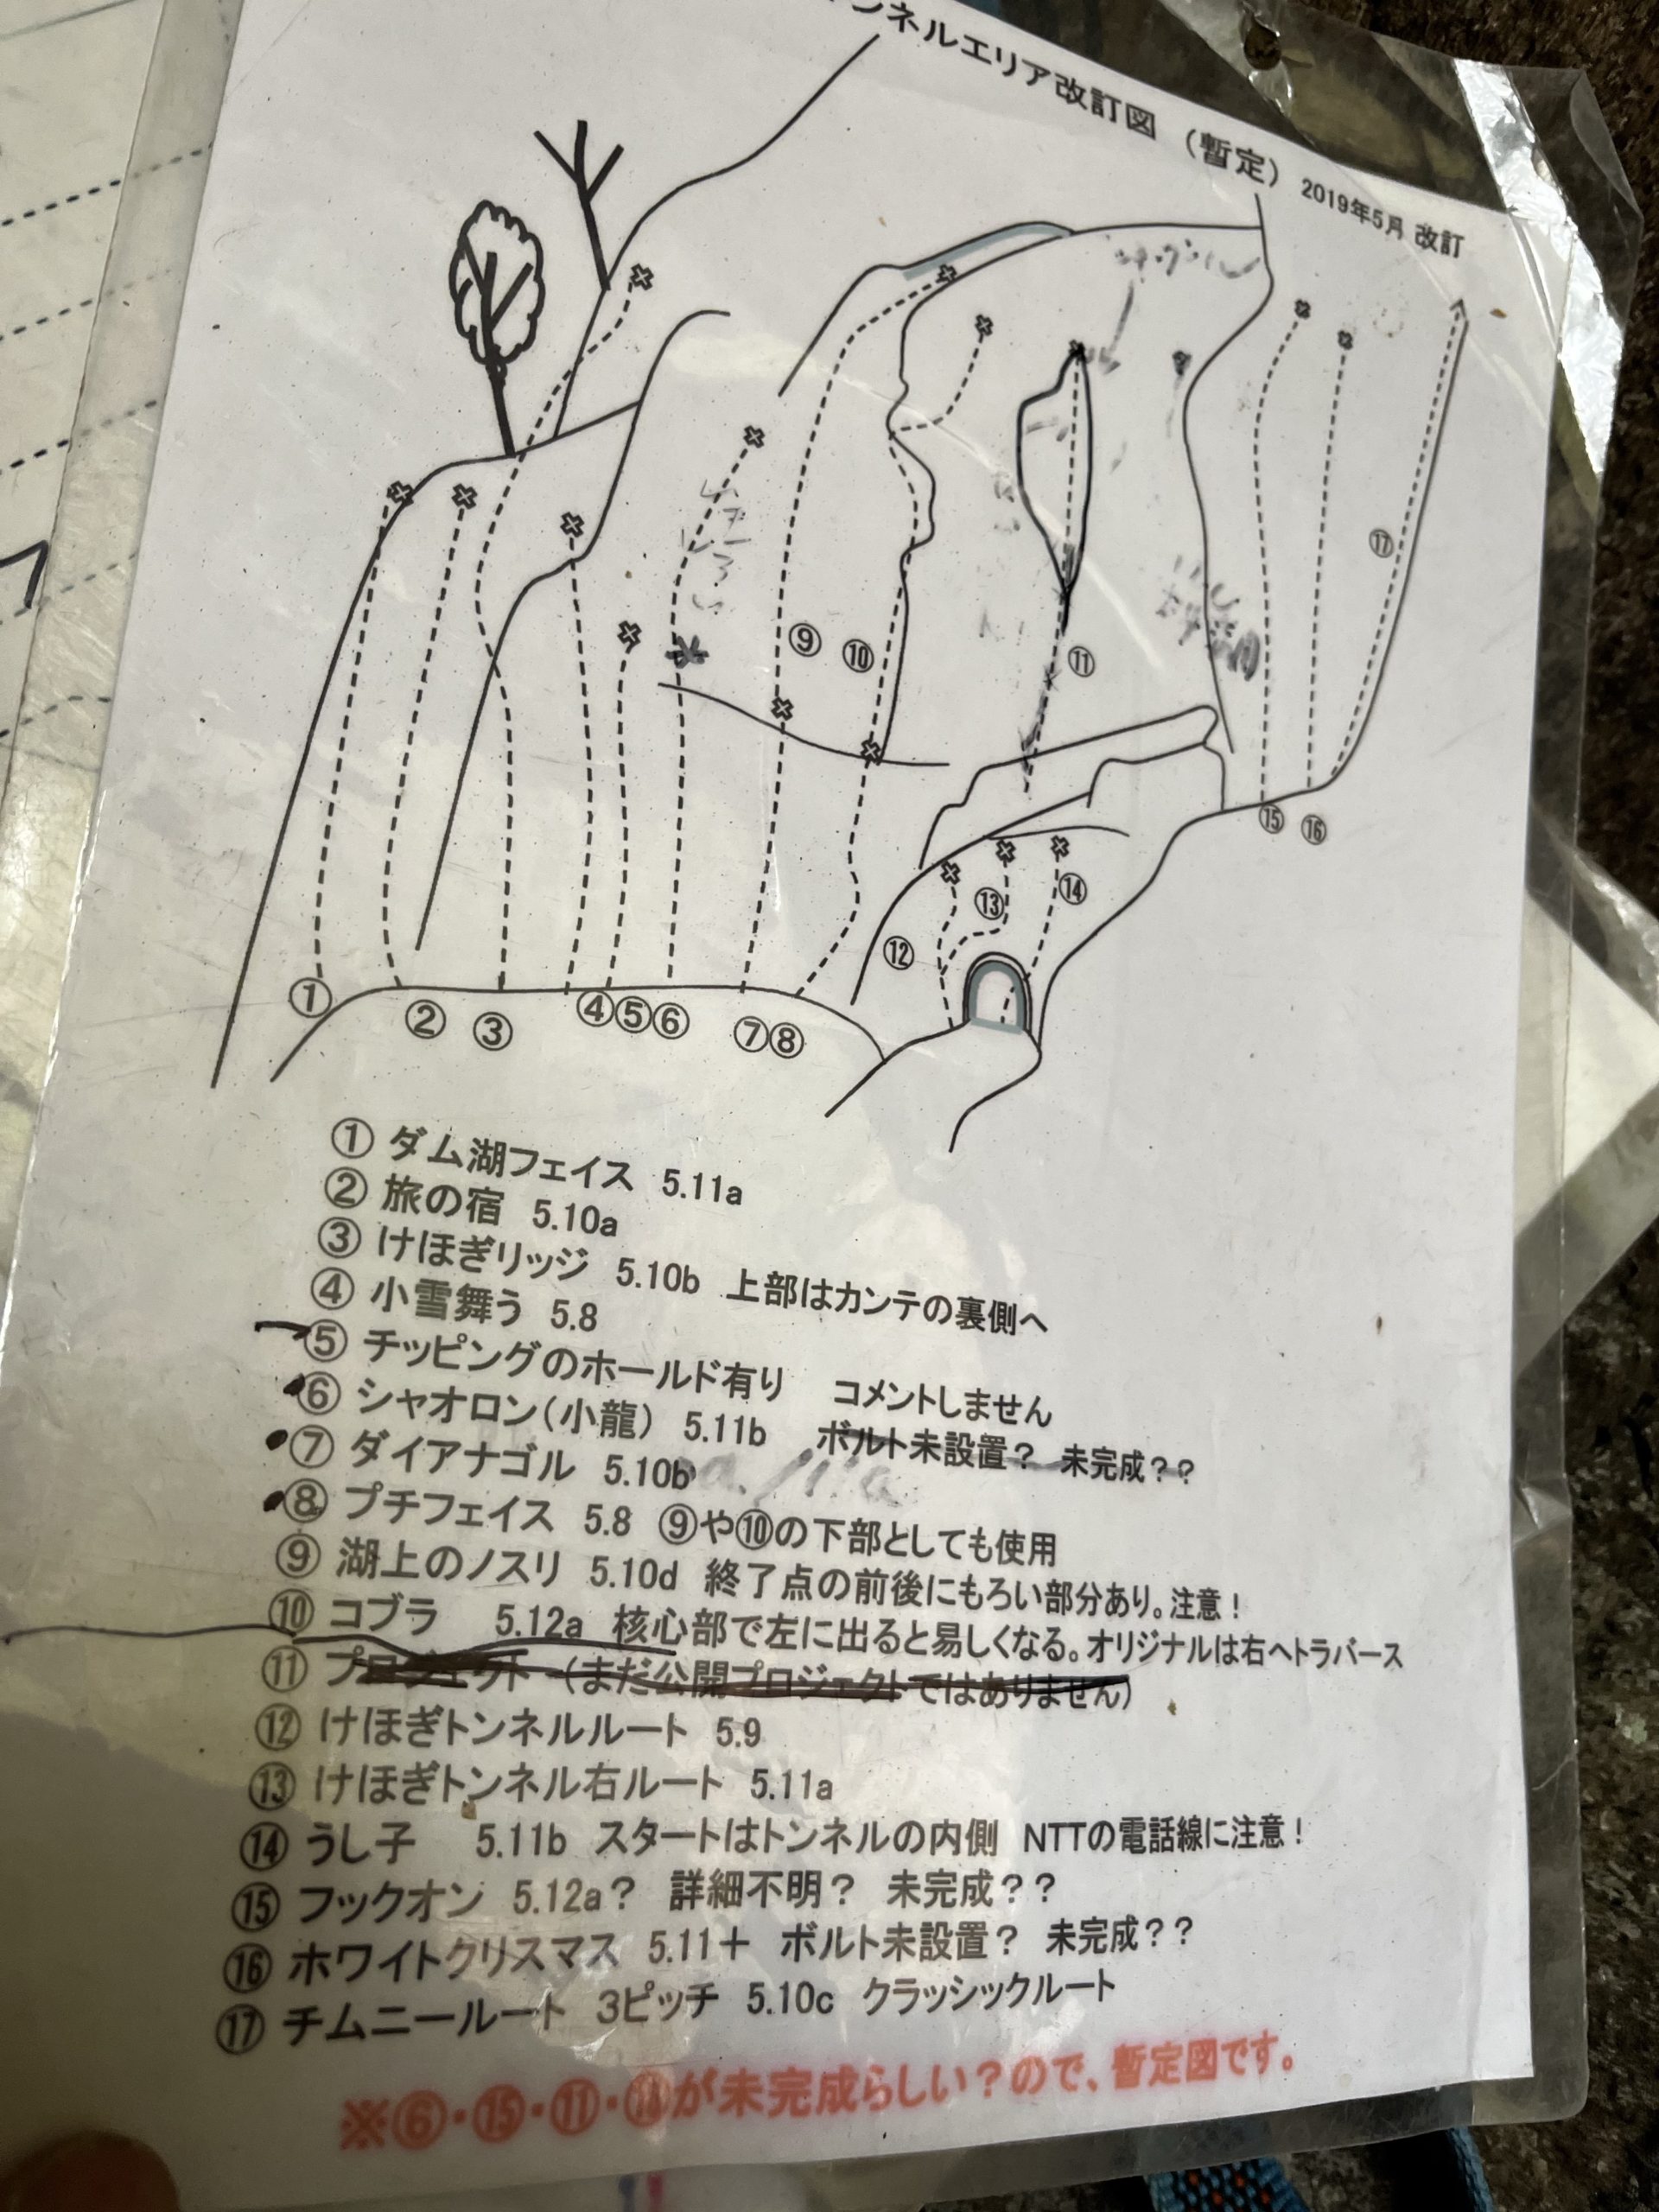 ンネルエリア改訂図 （暫定） 2019年5月 改訂
⑰
⑨ ⑩
⑪
⑮ ⑯
⑬ ⑭
⑫
① ② ③ ④⑤⑥ ⑦⑧
① ダム湖フェイス 5.11a
② 旅の宿 5.10a
③ けほぎリッジ 5.10b 上部はカンテの裏側へ
④ 小雪舞う 5.8
⑤ チッピングのホールド有り コメントしません
⑥ シャオロン（小龍） 5.11b ボルト未設置？ 未完成？？
⑦ ダイアナゴル 5.10b
⑧ プチフェイス 5.8 ⑨や⑩の下部としても使用
⑨ 湖上のノスリ 5.10d 終了点の前後にもろい部分あり。注意！
⑩ コブラ 5.12a 核心部で左に出ると易しくなる。オリジナルは右へトラバース
⑪ プロジェクト （まだ公開プロジェクトではありません）
⑫ けほぎトンネルルート 5.9
⑬ けほぎトンネル右ルート 5.11a
⑭ うし子 5.11b スタートはトンネルの内側 NTTの電話線に注意！
⑮ フックオン 5.12a？ 詳細不明？ 未完成？？
⑯ ホワイトクリスマス 5.11＋ ボルト未設置？ 未完成？？
⑰ チムニールート 3ピッチ 5.10c クラッシックルート
※⑥・⑮・⑪・が未完成らしい？ので、暫定図です。